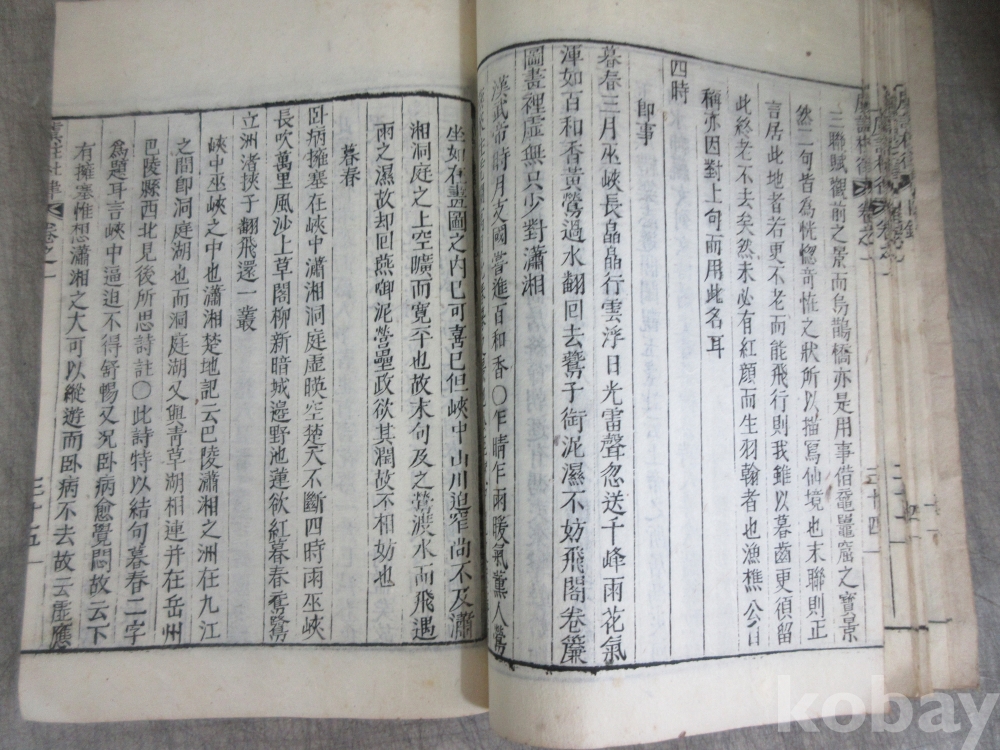 三聯賦觀前之景而烏鵲橋亦是用事借黿鼉窟之實景
然二句皆為恍惚奇惟之狀所以描寫仙境也末聯則正
言居此地者若更不老而能飛行則我雖以暮齒更須留
此終老不去矣然未必有紅顏而生羽翰者也漁樵公自
稱亦因對上句而用此名耳
四時
即事
暮春三月巫峽長晶晶行雲浮日光雷聲忽送千峰雨花氣
渾如百和香黃鶯過水翻回去鷰子銜泥濕不妨飛閣卷簾
圖畫裡虛無只少對瀟湘
漢武帝時月支國嘗進百和香〇乍晴乍雨暖氣薰人鶯
坐如在畫圖之內已可喜已但峽中山川迫窄尚不及瀟
湘洞庭之上空曠而寬平也故末句及之鶯濺水而飛遇
雨之濕故却回燕啣泥營壘政欲其潤故不相妨也
暮春
卧病擁塞在峽中瀟湘洞庭虛暎空楚天不斷四時雨巫峽
長吹萬里風沙上草閣柳新暗城邉野池蓮欲紅暮春鴛鷺
立洲渚挾子翻飛還一叢
峽中巫峽之中也瀟湘楚地記云巴陵瀟湘之洲在九江
之間即洞庭湖也而洞庭湖又與青草湖相連并在岳州
巴陵縣西北見後所思詩註〇此詩特以結句暮春二字
為題耳言峽中逼迫不得舒暢又况卧病愈覺悶故云下
有擁塞惟想瀟湘之大可以縱遊而卧病不去故云虛應
三十四
三十五
kobay